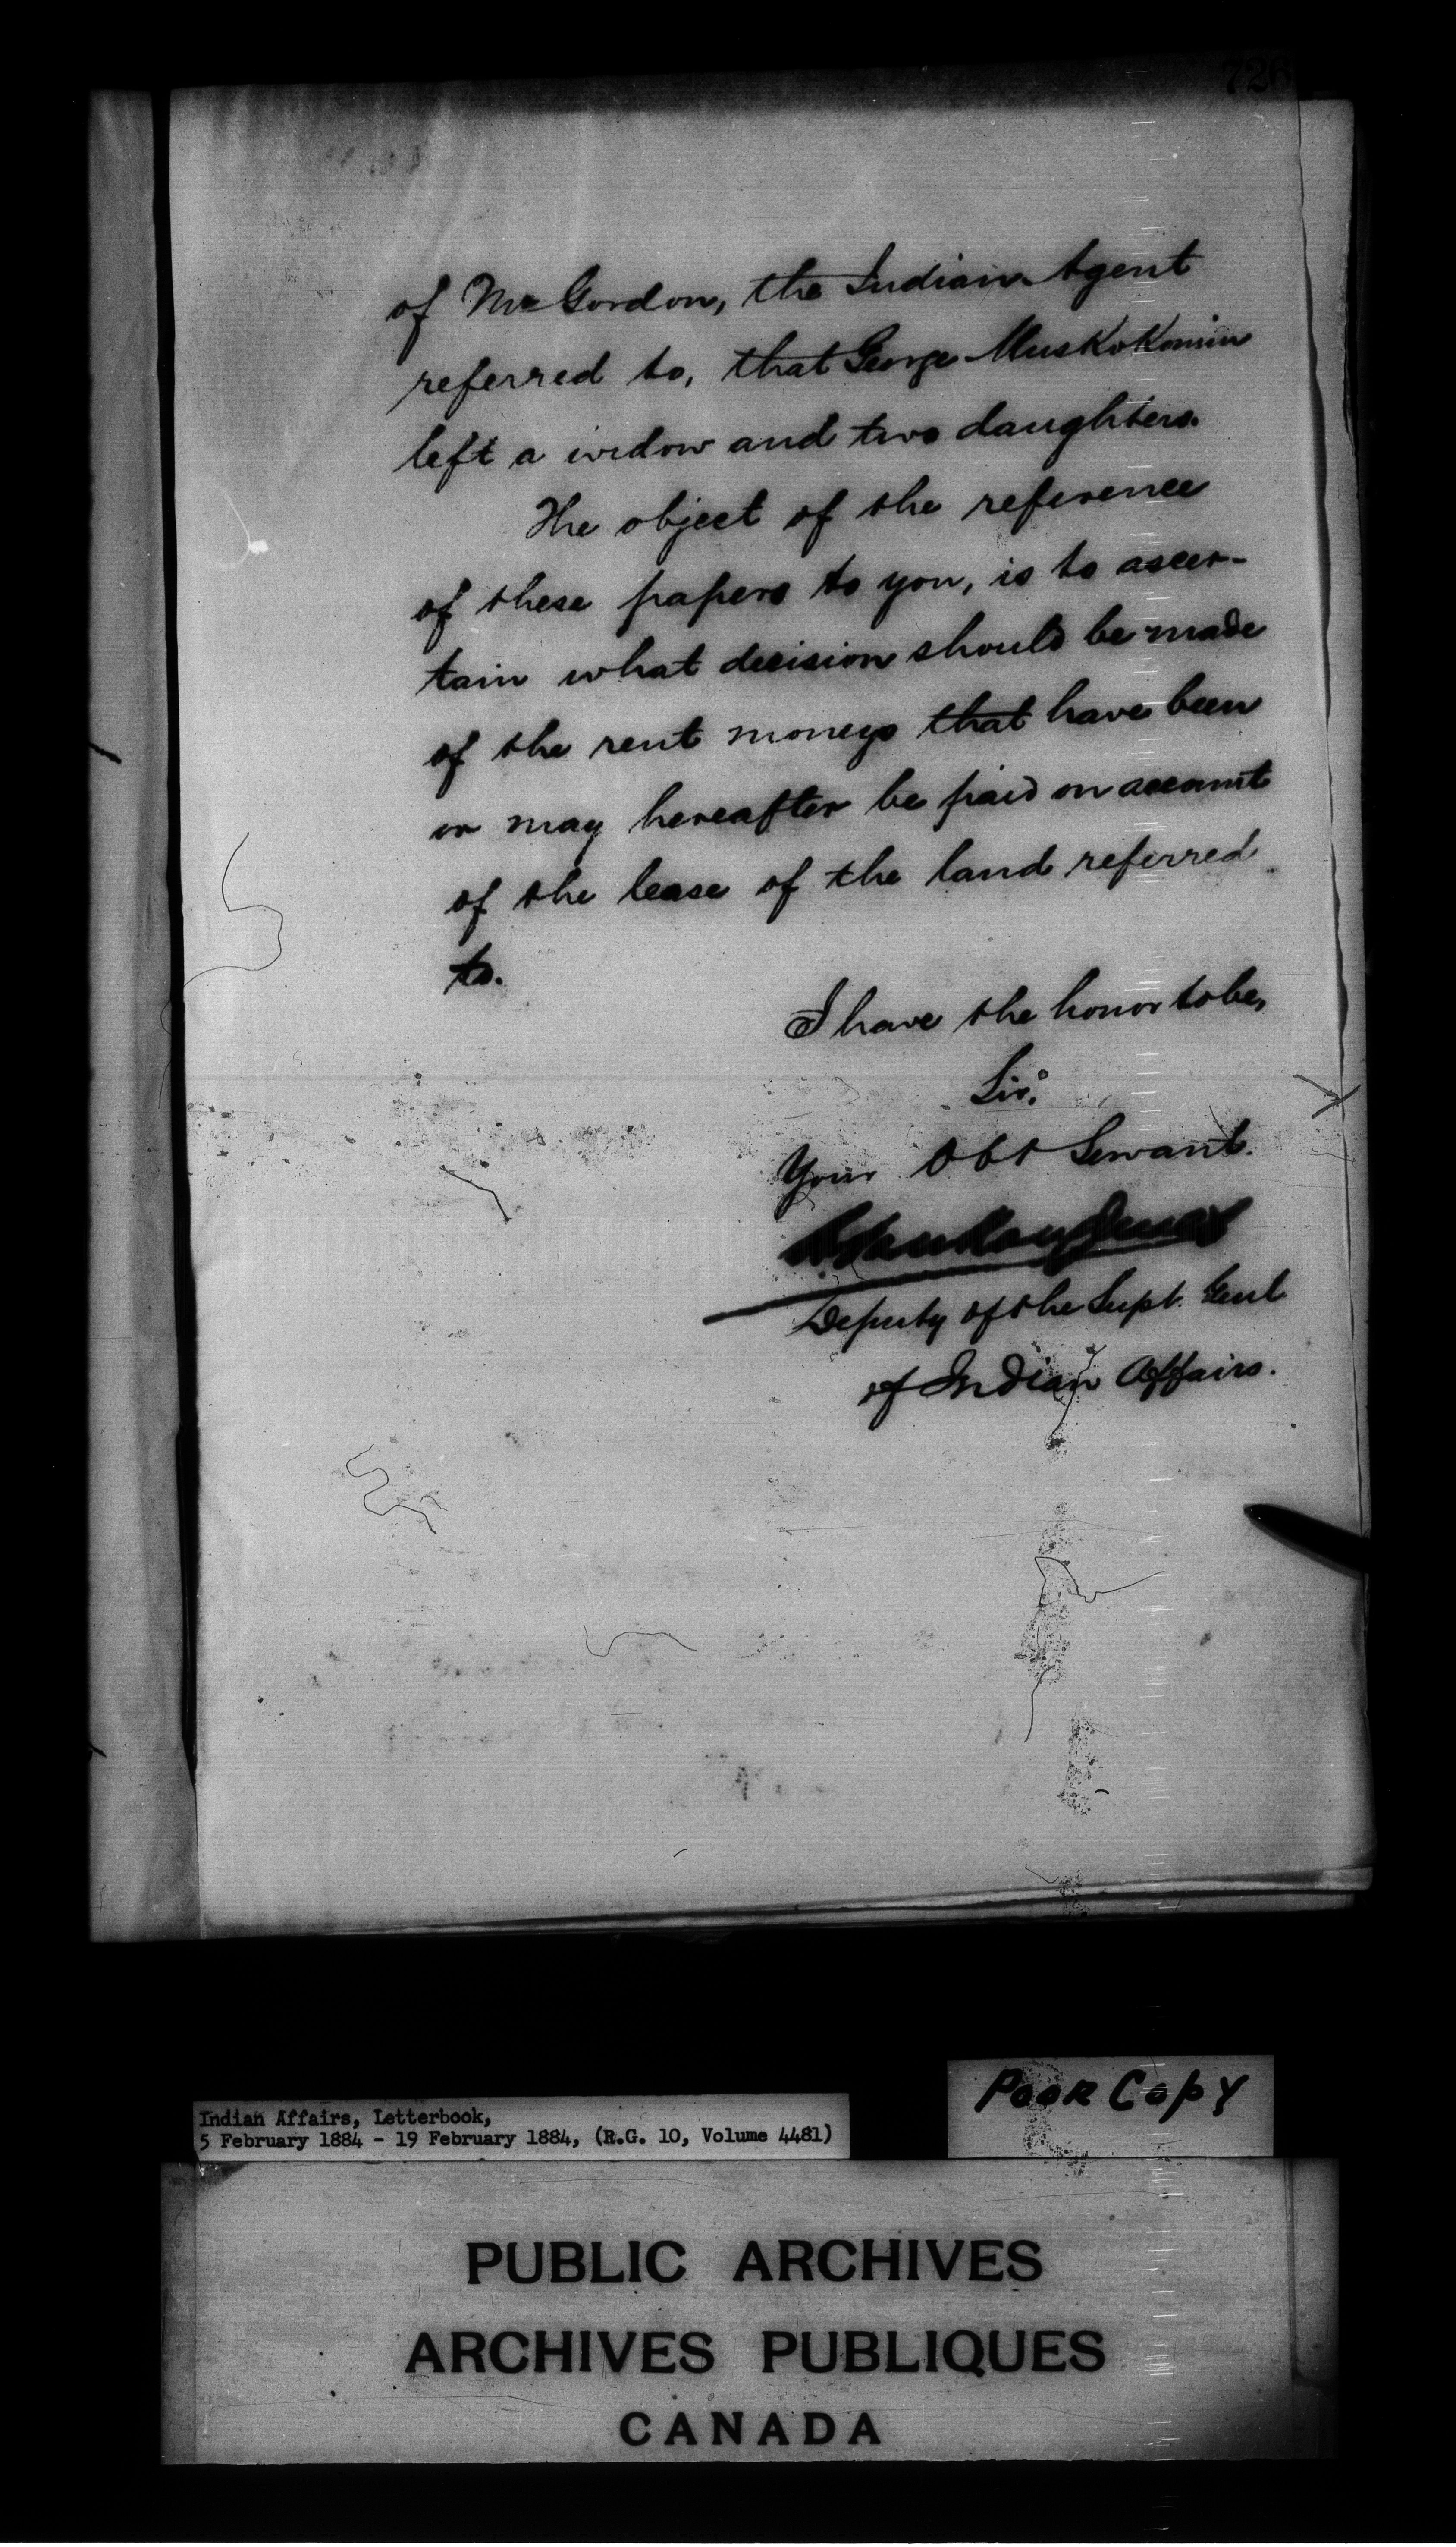 of Mr Gordon, the Indian Agent
referred to, that George Muskokomin
left a widow and two daughters.
The object of the reference
of these papers to you, is to ascer-
tain what decision should be made
of the rent moneys that have been
or may hereafter be paid on account
of the lease of the land referred
to.
I have the honor to be,
Sir,
Your Obt Servant.
Deputy of the Supt. Genl
of Indian Affairs.
Indian Affairs, Letterbook,
5 February 1884 - 19 February 1884, (R.G. 10, Volume 4481)
Poor Copy
PUBLIC ARCHIVES
ARCHIVES PUBLIQUES
CANADA